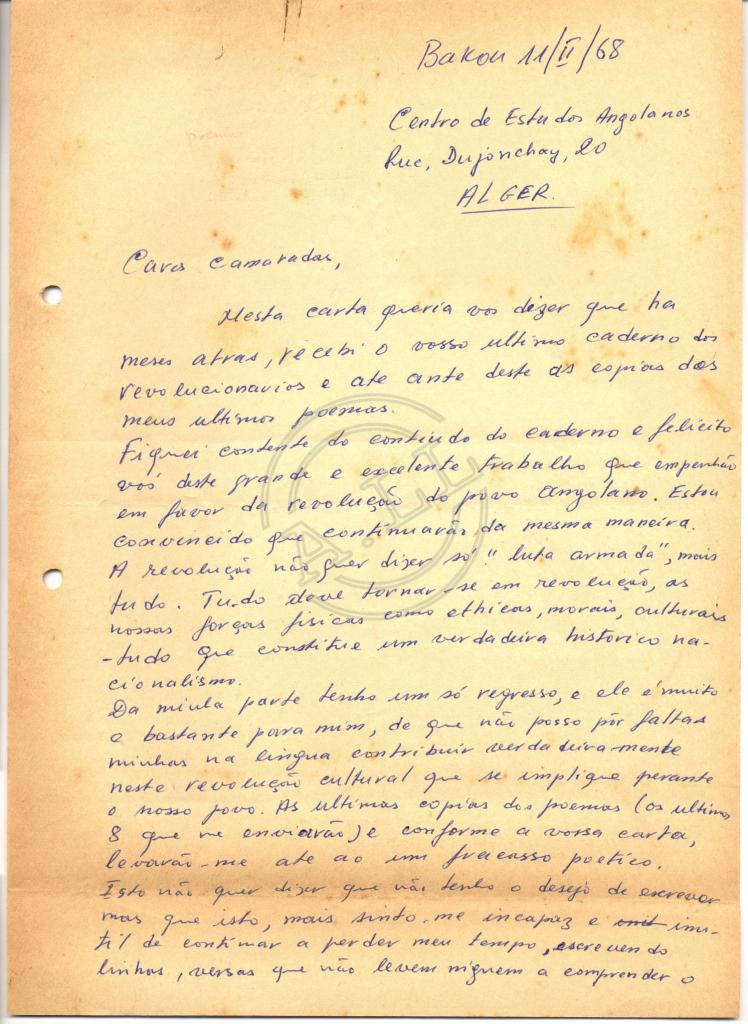 Bakou 11/II/68
Centro de Estudos Angolanos
Rue, Dujonchay, 20
ALGER.
Caros camaradas,
Nesta carta queria vos dizer que ha
meses atras, recebi o vosso ultimo caderno dos
revolucionarios e ate ante deste as copias dos
meus ultimos poemas.
Fiquei contente do contiudo do caderno e felicito
vos deste grande e excelente trabalho que empenhão
em favor da revolução do povo Angolano. Estou
convencido que continuarão da mesma maneira.
A revolução não quer dizer só "luta armada", mais
tudo. Tudo deve tornar-se em revolução, as
nossas forças fisicas como ethicas, morais, culturais
-tudo que constitue um verdadeira historico na-
cionalismo.
Da minha parte tenho um só regresso, e ele é muito
e bastante para mim, de que não posso pôr faltas
minhas na lingua contribuir verdadeira-mente
neste revolução cultural que se implique perante
o nosso povo. As ultimas copias dos poemas (os ultimos
8 que me enviarão) e conforme a vossa carta,
levarão-me ate ao um fracasso poetico.
Isto não quer dizer que não tenho o desejo de escrever
mas que isto, mais sinto-me incapaz e inu-
til de continuar a perder meu tempo, escrevendo
linhas, versas que não levem niguem a comprender o
A.LL